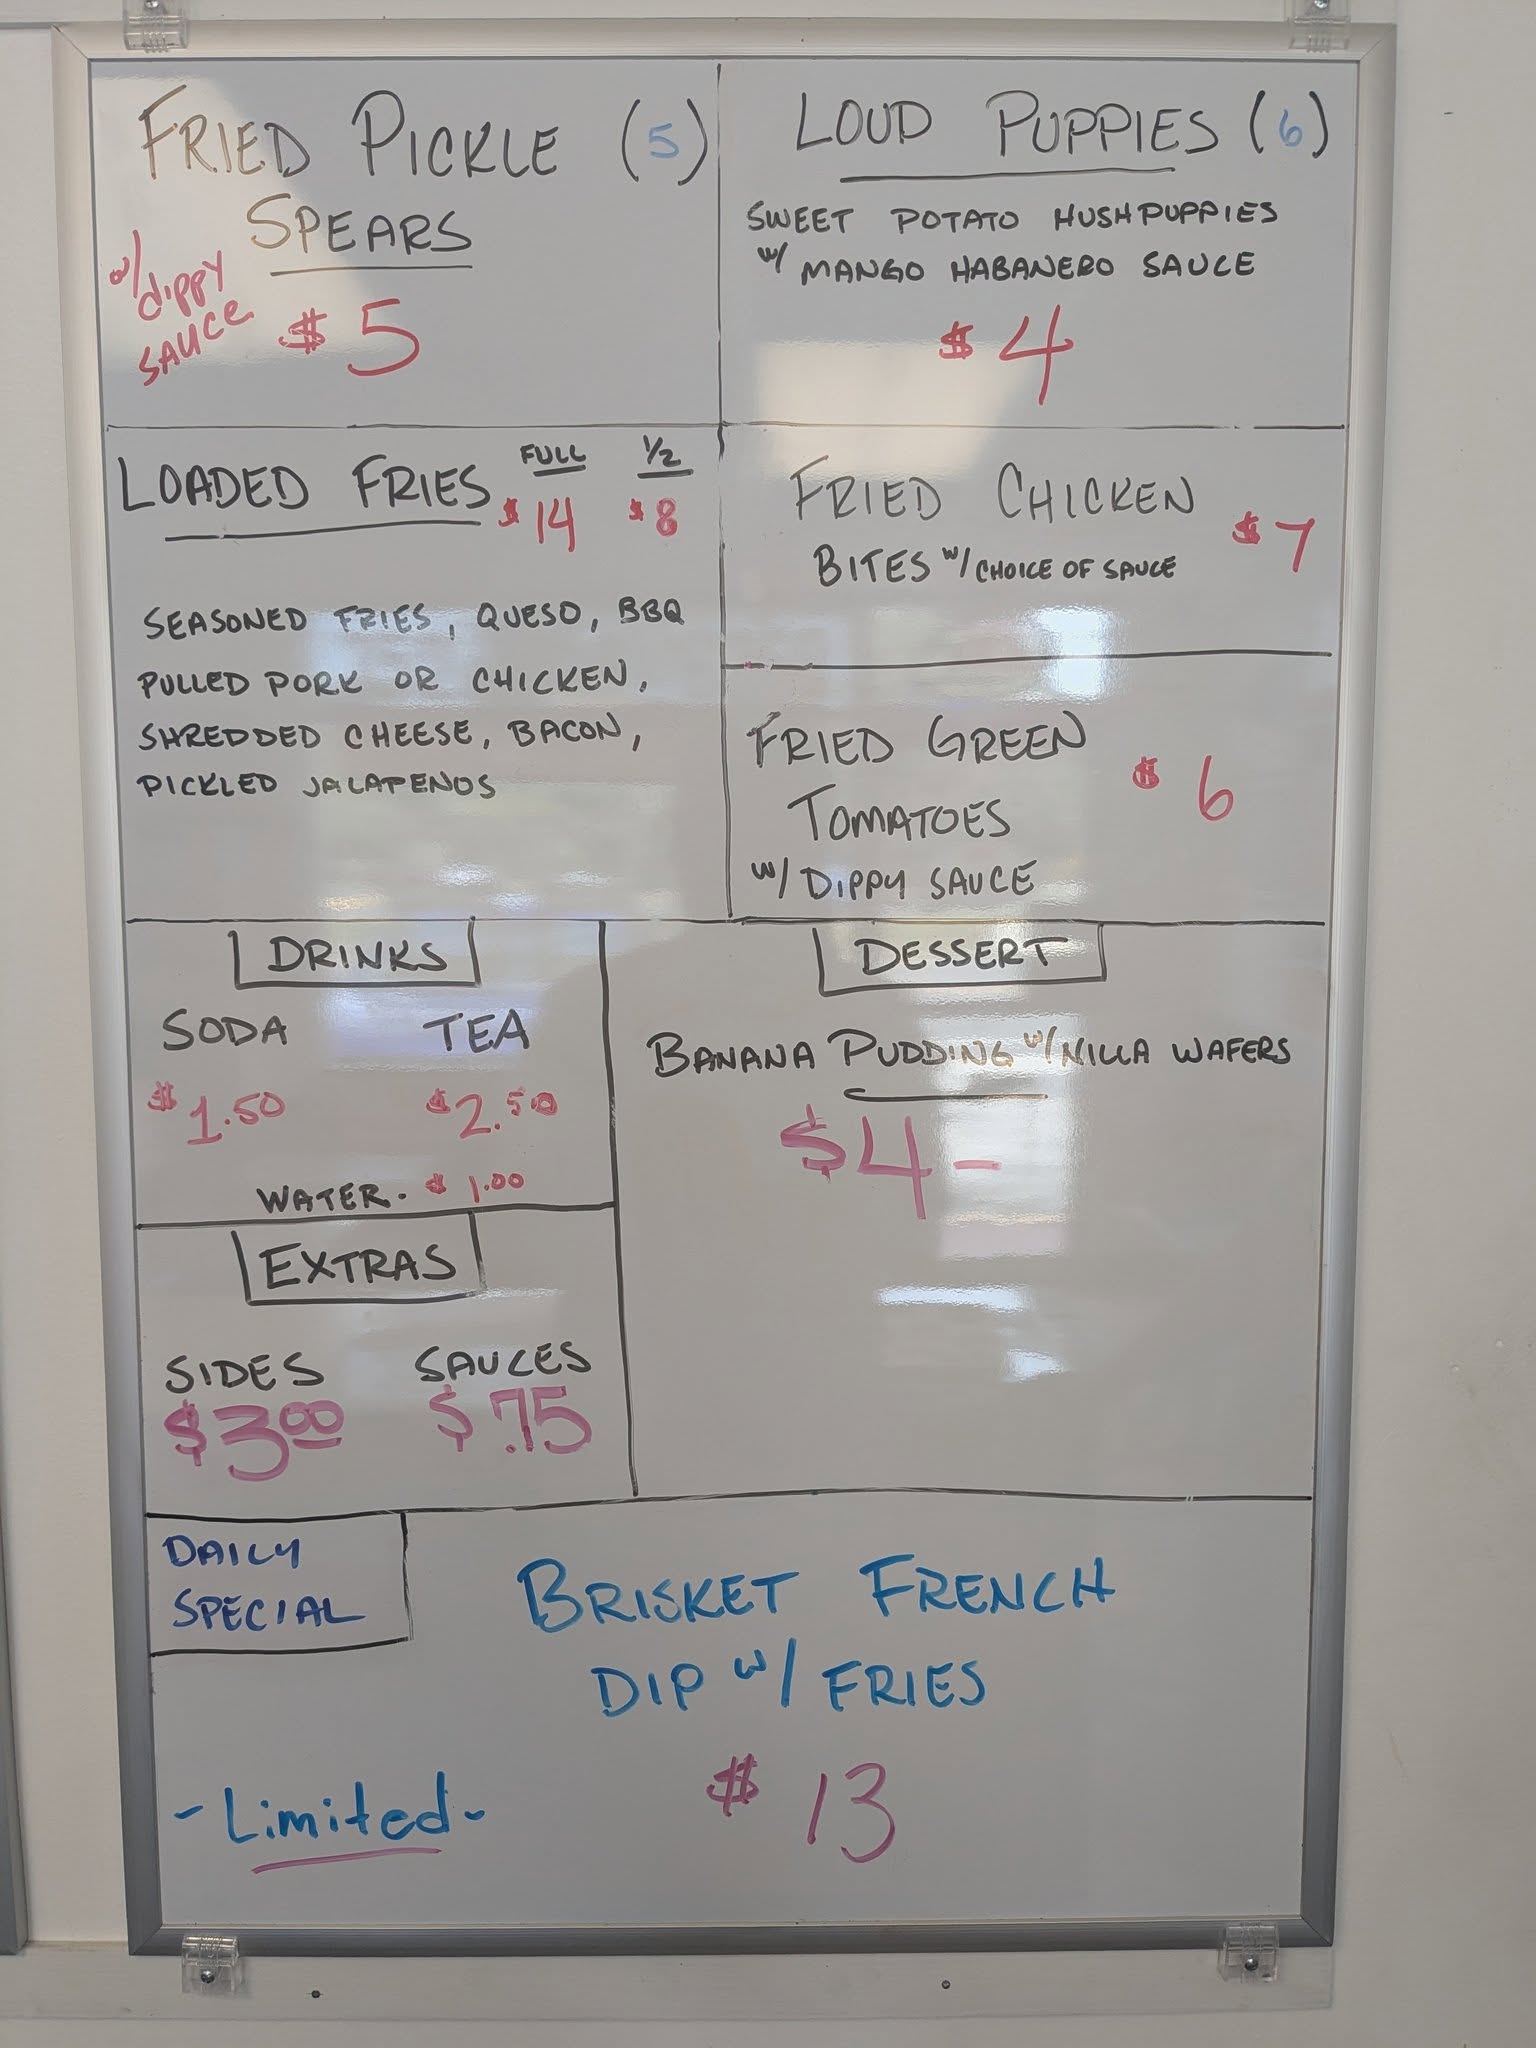 FRIED PICKLE (5)
SPEARS
w/dippy
SAUCE
$ 5
LOUD PUPPIES (6)
SWEET POTATO HUSHPUPPIES
w/ MANGO HABANERO SAUCE
$ 4
LOADED FRIES
FULL 1/2
$ 14 $ 8
SEASONED FRIES, QUESO, BBQ
PULLED PORK OR CHICKEN,
SHREDDED CHEESE, BACON,
PICKLED JALAPENOS
FRIED CHICKEN
BITES w/CHOICE OF SAUCE
$ 7
FRIED GREEN
TOMATOES
w/ DIPPY SAUCE
$ 6
DRINKS
SODA TEA
$1.50 $2.50
WATER. $ 1.00
DESSERT
BANANA PUDDING w/NILLA WAFERS
$4-
EXTRAS
SIDES SAUCES
$3.00 $.75
DAILY
SPECIAL
BRISKET FRENCH
DIP w/ FRIES
$ 13
- Limited -